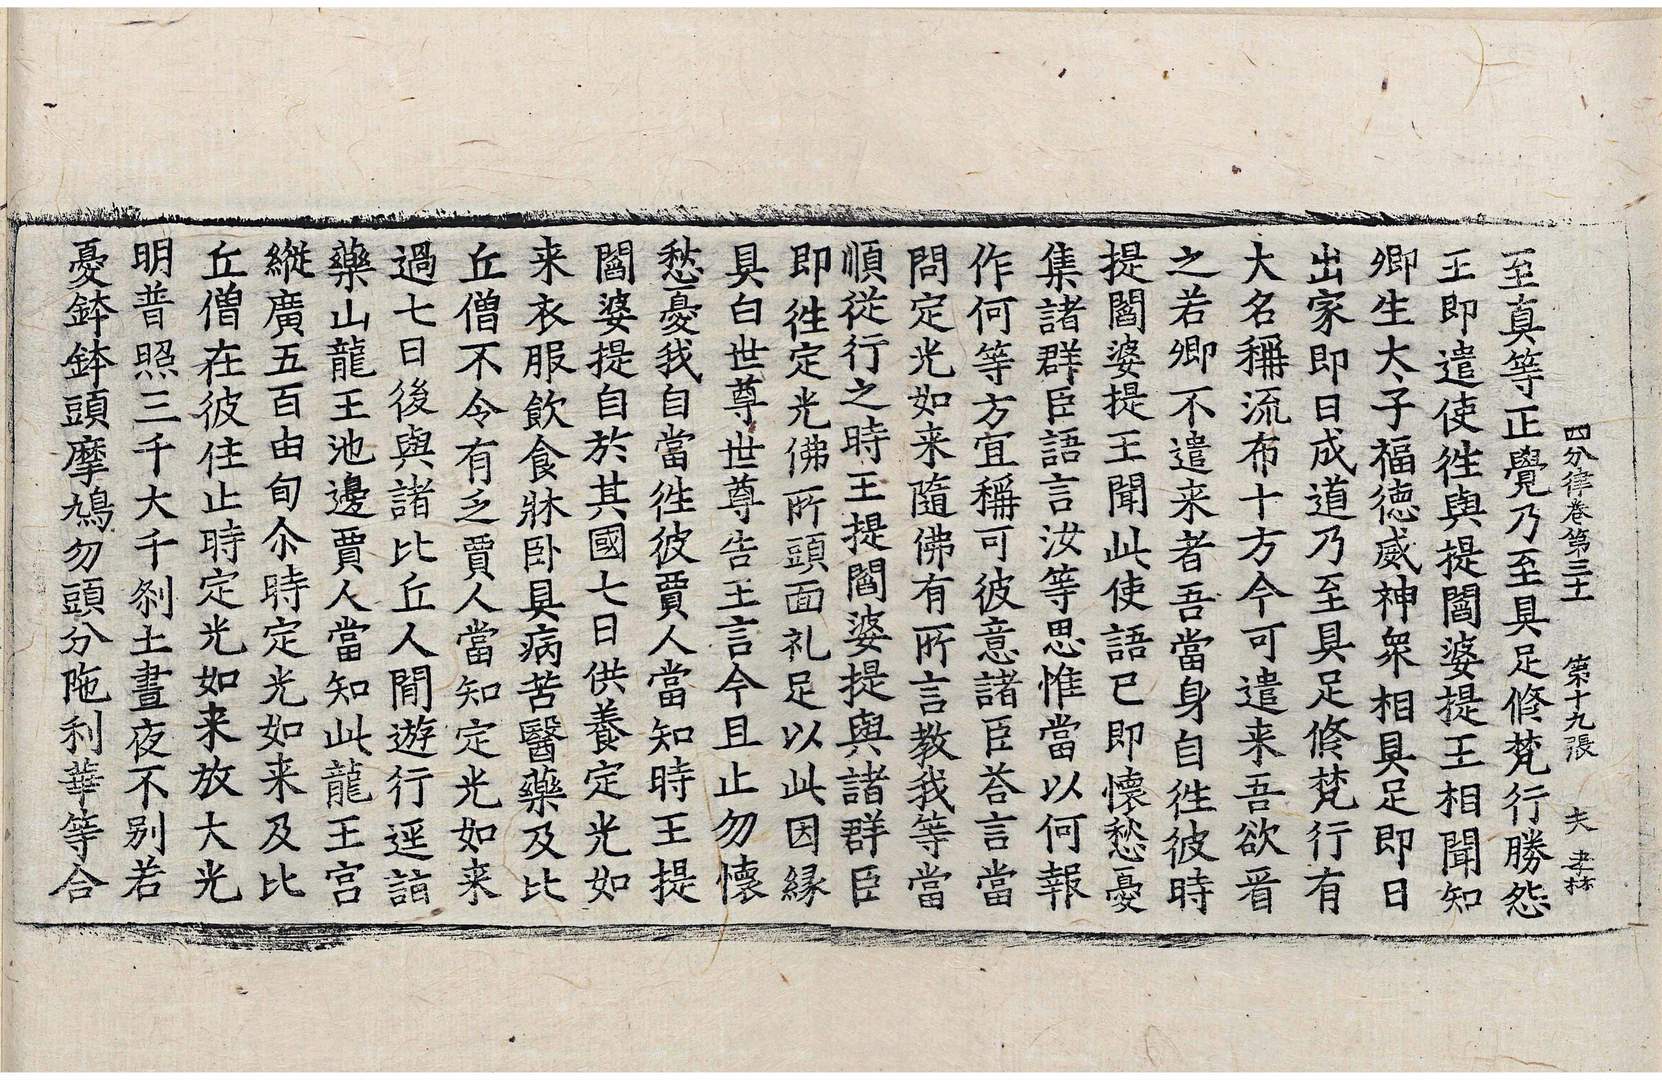 四分律卷第三十一 第十九張 夫 孝林
至真等正覺乃至具足修梵行勝怨
王即遣使徃與提閻婆提王相聞知
卿生太子福德威神衆相具足即日
出家即日成道乃至具足修梵行有
大名稱流布十方今可遣来吾欲看
之若卿不遣来者吾當身自徃彼時
提閻婆提王聞此使語已即懷愁憂
集諸群臣語言汝等思惟當以何報
作何等方宜稱可彼意諸臣荅言當
問定光如来隨佛有所言教我等當
順從行之時王提閻婆提與諸群臣
即徃定光佛所頭面礼足以此因緣
具白世尊世尊告王言今且止勿懷
愁憂我自當徃彼賈人當知時王提
閻婆提自於其國七日供養定光如
来衣服飲食牀卧具病苦醫藥及比
丘僧不令有乏賈人當知定光如来
過七日後與諸比丘人間遊行逕詣
藥山龍王池邊賈人當知此龍王宮
縱廣五百由旬尒時定光如来及比
丘僧在彼住止時定光如来放大光
明普照三千大千剎土晝夜不別若
憂鉢鉢頭摩鳩勿頭分陁利華等合